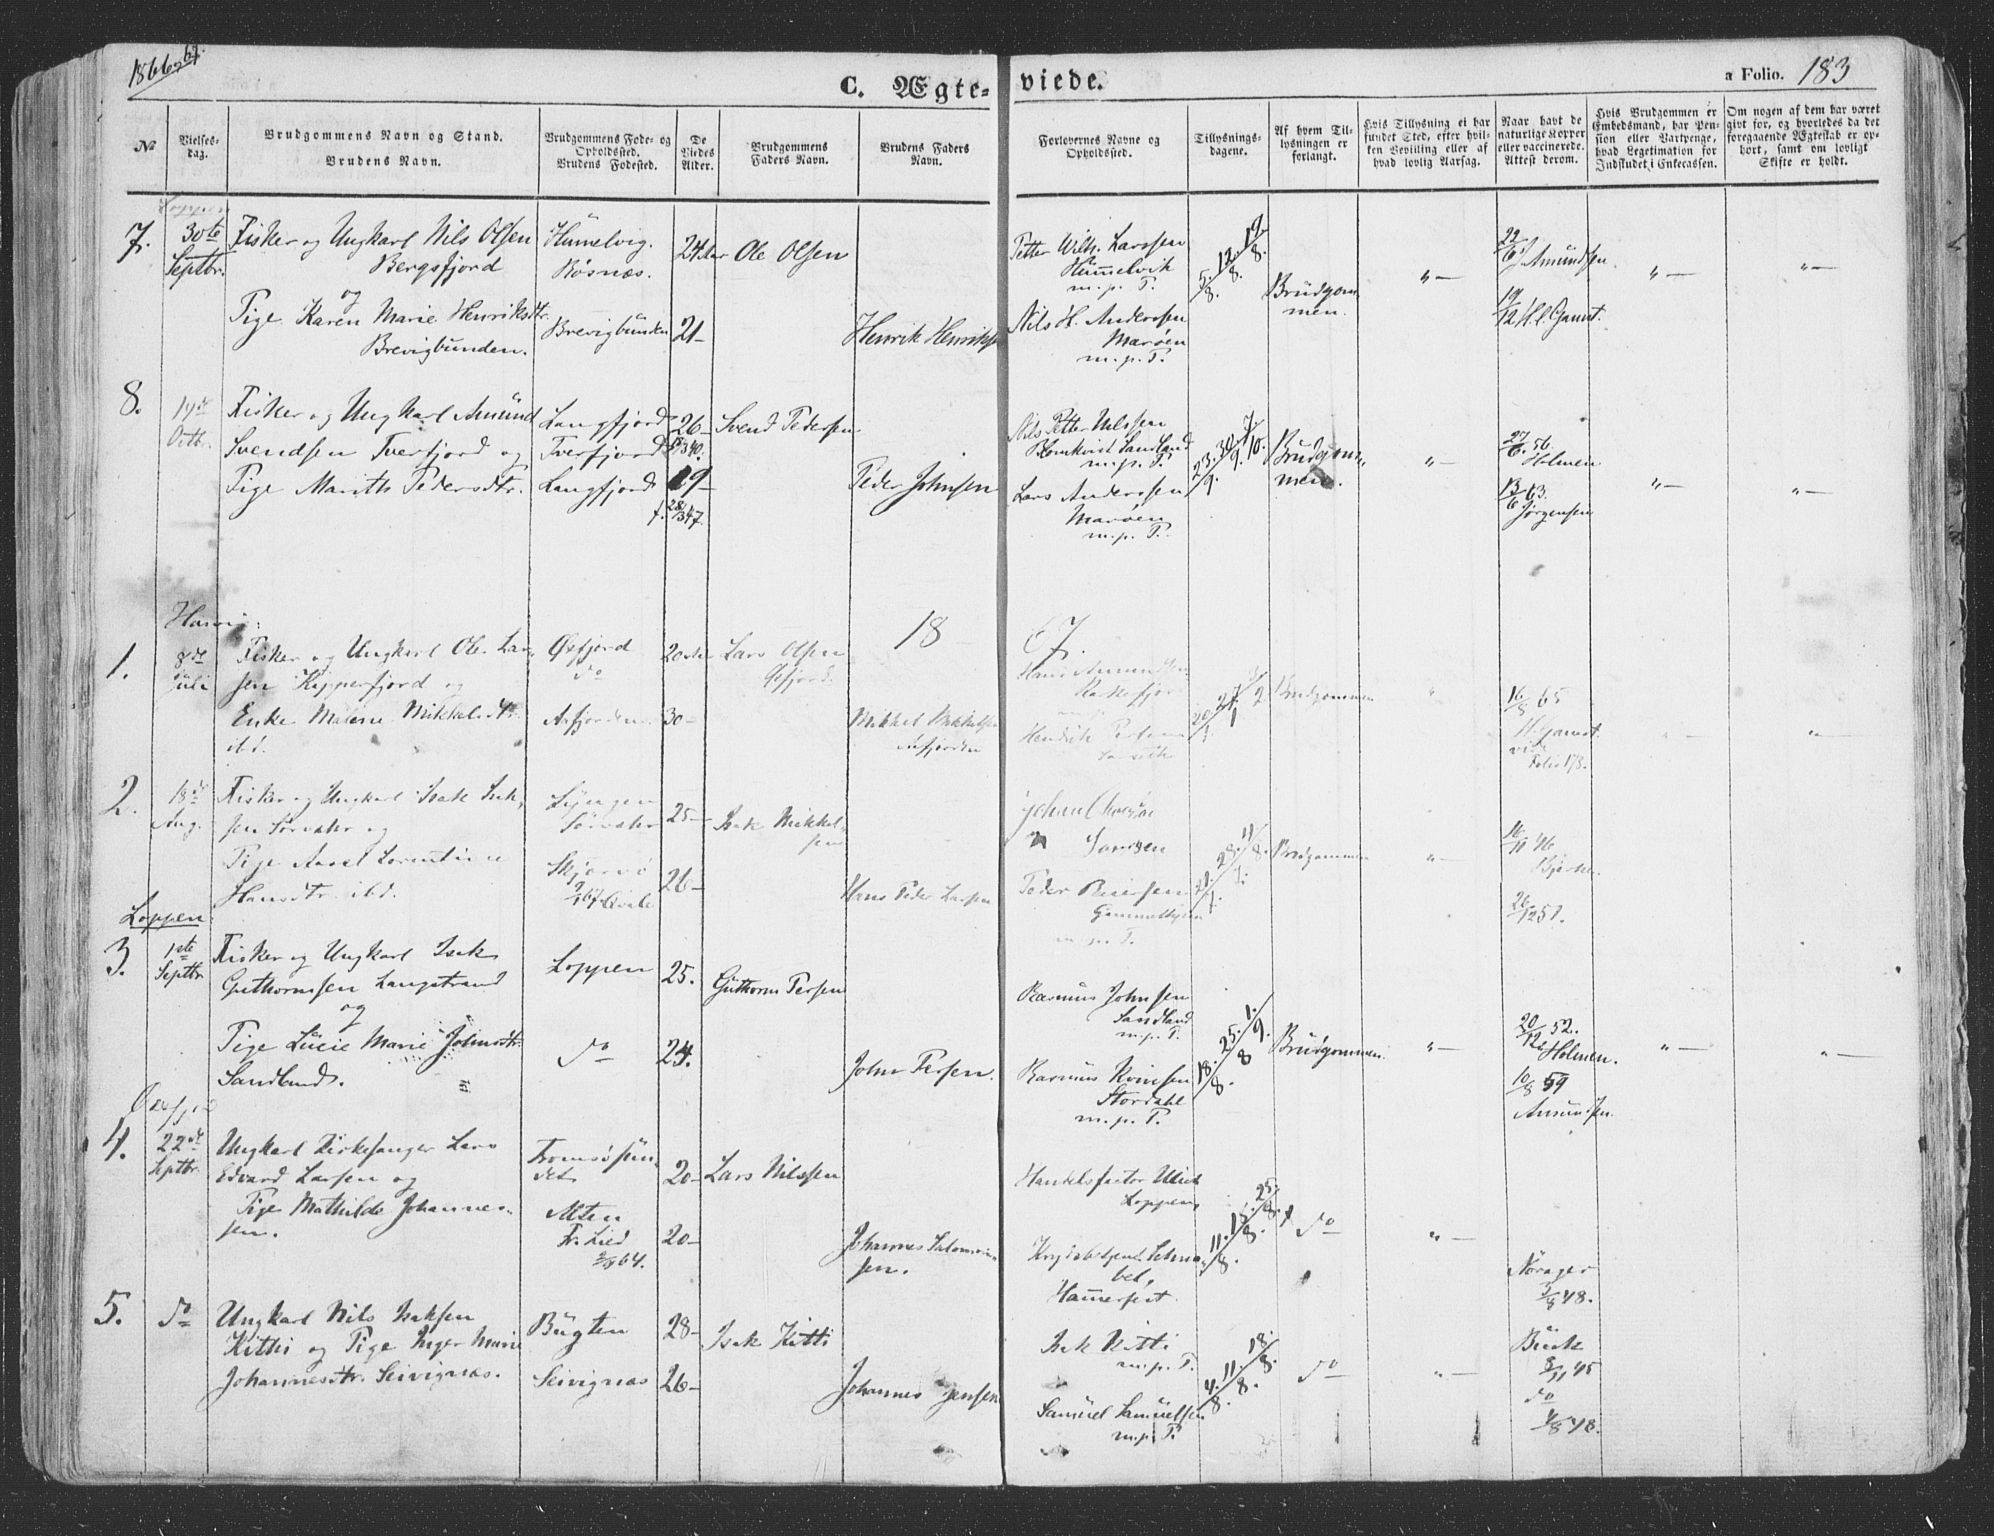 1866, 67.
C. Ægte-viede.
a Folio. 183
No
Vielses-dag.
Brudgommens Navn og Stand.
Brudens Navn.
Brudgommens Føde- og Opholdssted.
Brudens Fødested.
De Viedes Alder.
Brudgommens Faders Navn.
Brudens Faders Navn.
Forlovernes Navne og Opholdssted.
Tillysnings-dagene.
Af hvem Til-lysningen er forlangt.
Hvis Tillysning ei har fundet Sted, efter hvil-ken Bevilling eller af hvad lovlig Aarsag.
Naar havt de naturlige Kopper eller vaccinerede. Attest derom.
Hvis Brudgommen er Embedsmand, har Pen-sion eller Vartpenge, hvad Legetimation for Indskudet i Enkecassen.
Om nogen af dem har været gift før, og hvorledes da det foregaaende Ægteskab er op-hørt, samt om lovligt Skifte er holdt.
Loppen
7.
30te Septbr.
Fisker og Ungkarl Nils Olsen
Bergsfjord
og
Pige Karen Marie Henriksdtr.
Brevigbunden.
Himelvig.
Røsnæs.
Brevigbunden
24 Aar
21-
Ole Olsen
Henrik Henriksen
Petter Wilh. Larssen
Himelvik
m. p. P.
Nils H. Anderssen
Marøen
m. p. P.
5/8. 12/8. 19/8.
Brüdgom-
men.
"—
22/6 Amundsen.
19/12 H. C. Gamst.
"—
"—
8.
14de Octb.
Fisker og Ungkarl Amünd
Svendsen Tverfjord og
Pige Marith Pedersdtr.
Langfjord
Tverfjord
Langfjord
26-
19-
Svend Pedersen
Peder Johnsen
Nils Petter Nilssen
Blomkvist Sandland
m. p. P.
Lars Anderssen
Marøen
m. p. P.
23/9. 30/9. 7/10.
Brüdgom-
men.
"—
27/6. 56.
Holmen
13/6 63.
Jørgensen
"—
"—
1867.
1.
8de Juli
Fisker og Ungkarl Ole Lar-
sen Kipperfjord og
Enke Malene Mikkelsdtr.
ibd.
Øxfjord
do
Aafjorden
20 Aar
30-
Lars Olsen
Øxfjord.
Mikkel Mikkelsen
Aafjorden
Hans Amundsen
Hendrik
20/1 27/1
Brudgommen
16/8 65
H. Gamst.
vide
Folio 178.
2.
18de Aug.
Fisker og Ungkarl Isak Isak-
sen Sørvahr og
Pige
Hansdtr. ibd.
Lyngen
Sørvahr
Skjervø
25-
26-
Isak Mikkel-
sen
Hans Peder Larsen
Peder
m. p. P.
Brüdgommen
"—
26/12 51.
Loppen:
3.
1ste Septbr.
Fisker og Ungkarl Isak
Guthormsen Langstrand
og
Pige Lücie Marie Johnsdtr.
Sandland.
Loppen
do
25.
24.
Güthorm Persen
John Persen.
Rasmus Johnsen
Sandland
m. p. P.
Rasmus
Stordahl
m. p. P.
18/8. 25/8 1/9.
Brüdgommen.
"—
20/12 52.
Holmen.
10/8 59
Amündsen.
"—
"—
4.
22de Septbr.
Ungkarl Kirkesanger Lars
Edvard Larsen og
Pige Mathilde Johannes-
sen.
Tromsøsün-
det
Alten
20-
20-
Lars Nilssen
Johannes Salomon-
sen.
Handelsfactor Ulich
Loppen,
Hamerfest
11/8. 15/8. 25/8.
do
"—
Norager
3/8 48.
5.
do
Ungkarl Nils Isaksen
Kitthi og Pige Inger Marie
Johannesdtr. Seivignæs.
Bügten
Seivignæs
28-
26-
Isak Kitti
Johannes Jensen
Isak Kitti
m. p. P.
Samüel Samüelsen
m. p. P.
4/8. 11/8. 18/8.
do
"—
Bück
8/11 45
do
4/8 48.